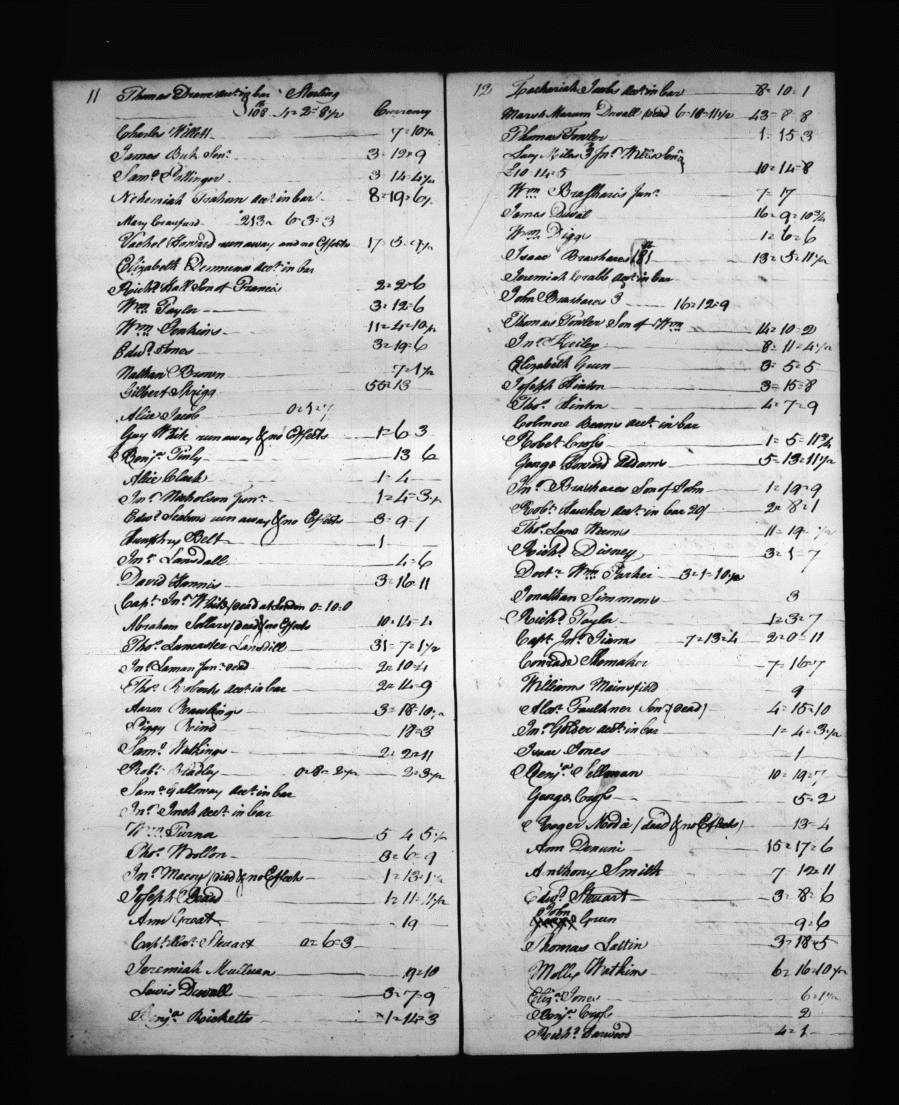 11 Thomas Drane acct in bar Sterling
108 4=2=8½ Currency
Charles Willett 7=10½
James Buk Senr. 3=19=9
Saml. Pottinger 3 14=4½
Nehemiah acct in bar 8=19=6½
Mary Crawford 213 6=3=3
Vachel Howard run away and no Effects 17=5=9½
Elizabeth acct in bar
Richd. Hall Son of Francis 2=2=6
Wm. Taylor 3=12=6
Wm. Jenkins 11=4=10½
Edwd. Jones 3=19=6
Nathan Brown 7=1½
Gilbert Sprigg 55=13
Alice Jacob
Guy White run away & no Effects 1=6=3
Benja. 13 6
Alice Clark 1=4
Jno. Nicholson Junr. 1=4=3½
Edwd. run away & no Effects 3=9=7
Humphry Belt 1
Jno. Lansdall 4=6
David Hannis 3=16=11
Capt. Jno. White/Dead at London 0=10=0
Abraham Sollars/Dead & no Effects
Thos. Lancaster Lansdill 31=7=1½
Jno. Laman Junr. Dead 2=10=4
Thos. Roberts acct in bar 2=14=9
Aaron Rawlings 3=18=10½
Piggy Rind 18=3
Saml. Watkings 2=2=11
Robt. Bradley 0=8=2½ 2=3½
Saml. Galloway acct in bar
Jno. Inch acct in bar
Wm. Turner 5 4 5½
Thos. Wollon 3=6=9
Jno. Macoy/Dead & no Effects 1=13=1½
Joseph Beard
Ann Great 19
Capt. Stewart 0=6=3
Jeremiah Mullican 19=10
Lewis Duvall 3=7=9
Benja. Ricketts 1=14=3
12 Zachariah Jacobs acct in bar 8=10=1
Marsh Mareen Duvall/Dead 6=18=11½ 43=8=8
Thomas Fowler 1=15=3
£10 14=5 10=14=8
Wm. Brashears Junr. 7=17
James Duvall 16=9=10¾
Wm. Diggs 1=6=6
Isaac Brashears 181 13=5=11½
Jeremiah Crabb acct in bar
John Brashears 3 16=12=9
Thomas Fowler Son of Wm. 14=10=2
Jno. Keiley 8=11=4½
Elizabeth Green 3=5=5
Joseph Hinton 3=15=8
Thos. Hinton 4=7=9
Colmore Beans acct in bar
Robert Cross 1=5=11¾
George Howard Adams 5=13=11½
Jno. Brashears Son of John 1=19=9
Robt. Hawker acct in bar 20/ 2=8=1
Thos. Lane Weems
Richd. Disney 3=1=7
Doctr. Wm. Parker 3=1=10½
Jonathan Simmons 3
Richd. Taylor 1=3=7
Capt. Jno. 7=13=4 2=0=11
Conrade Shomaker 7=16=7
Williams Mainsfild 9
Alexr. Faulkner Senr. (Dead) 4=15=10
Jno. Golder acct in bar 1=4=3½
Isaac Jones 1
Benja. Sellman 10=19=7
George Cross 5=2
Roger / dead & no Effects) 13=4
Ann 15=17=6
Anthony Smith 7 12=11
Edwd. Stewart 3=8=6
John
Green 9=6
Thomas Lattin 3=18=5
Molly Watkins 6=16=10½
Eliza. Jones 6=1½
Benja. Cross 2
Richd. Harwood 4=1